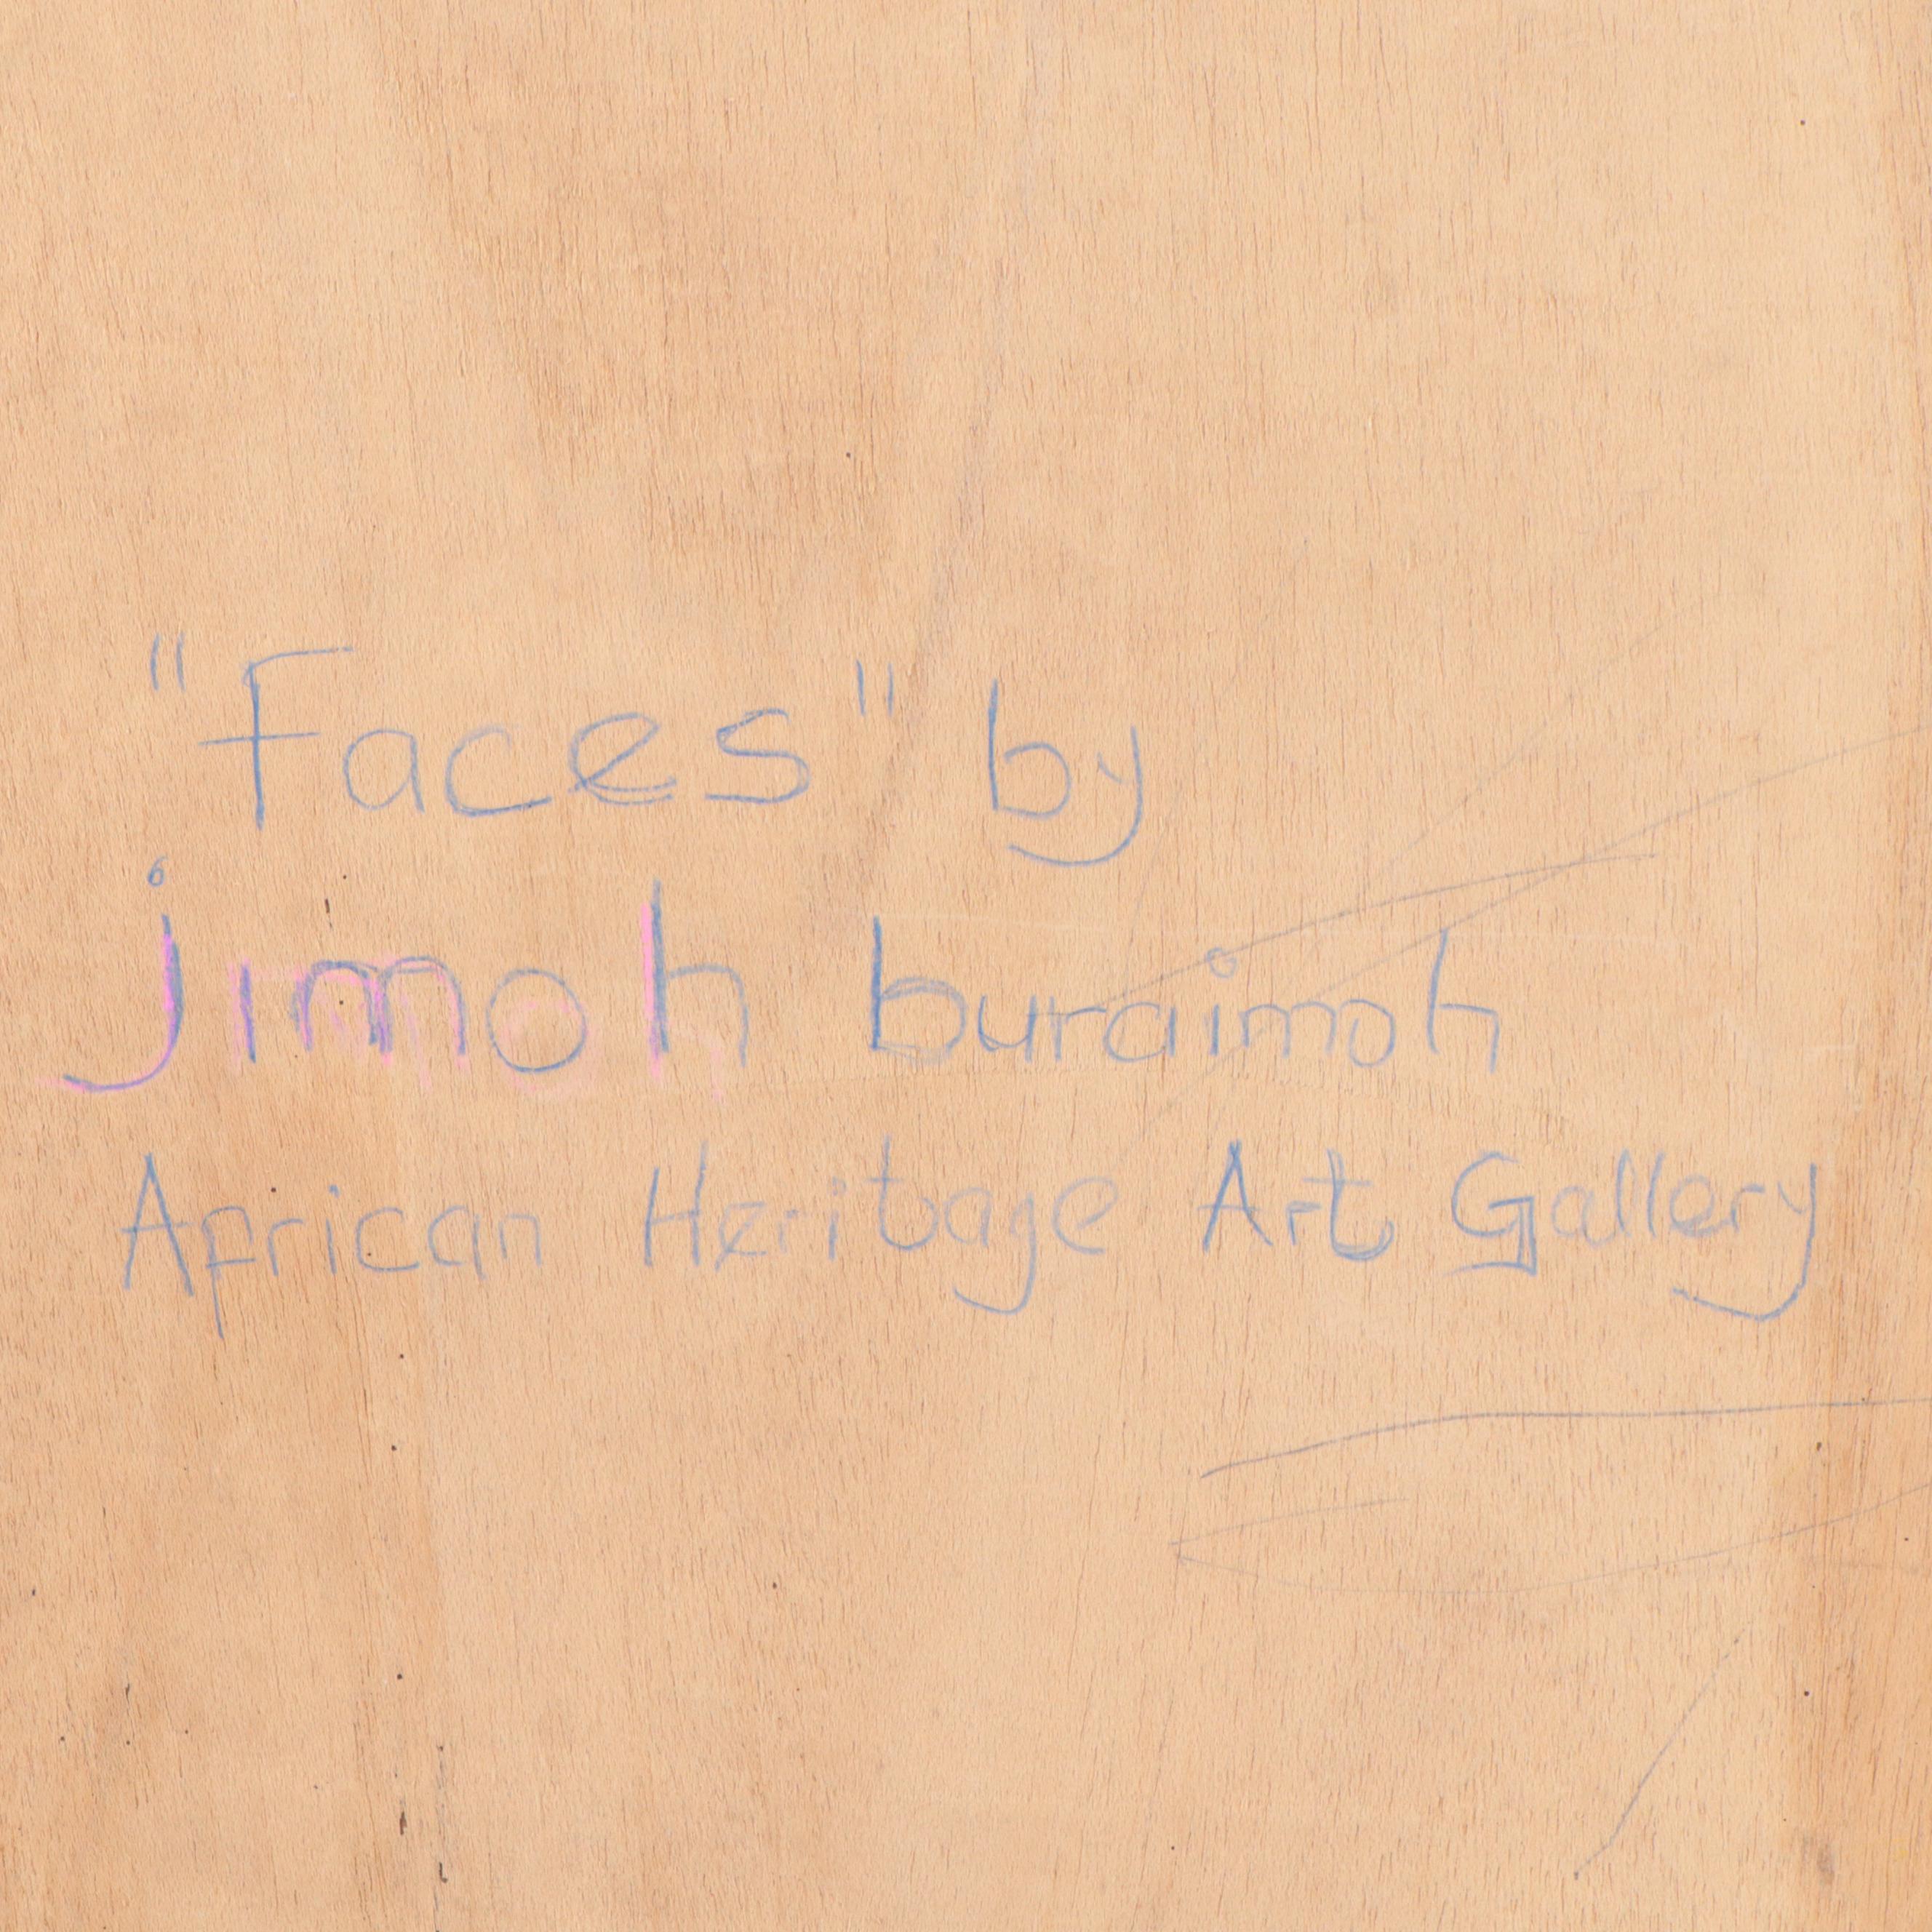 "Faces" by
jimoh buraimoh
African Heritage Art Gallery